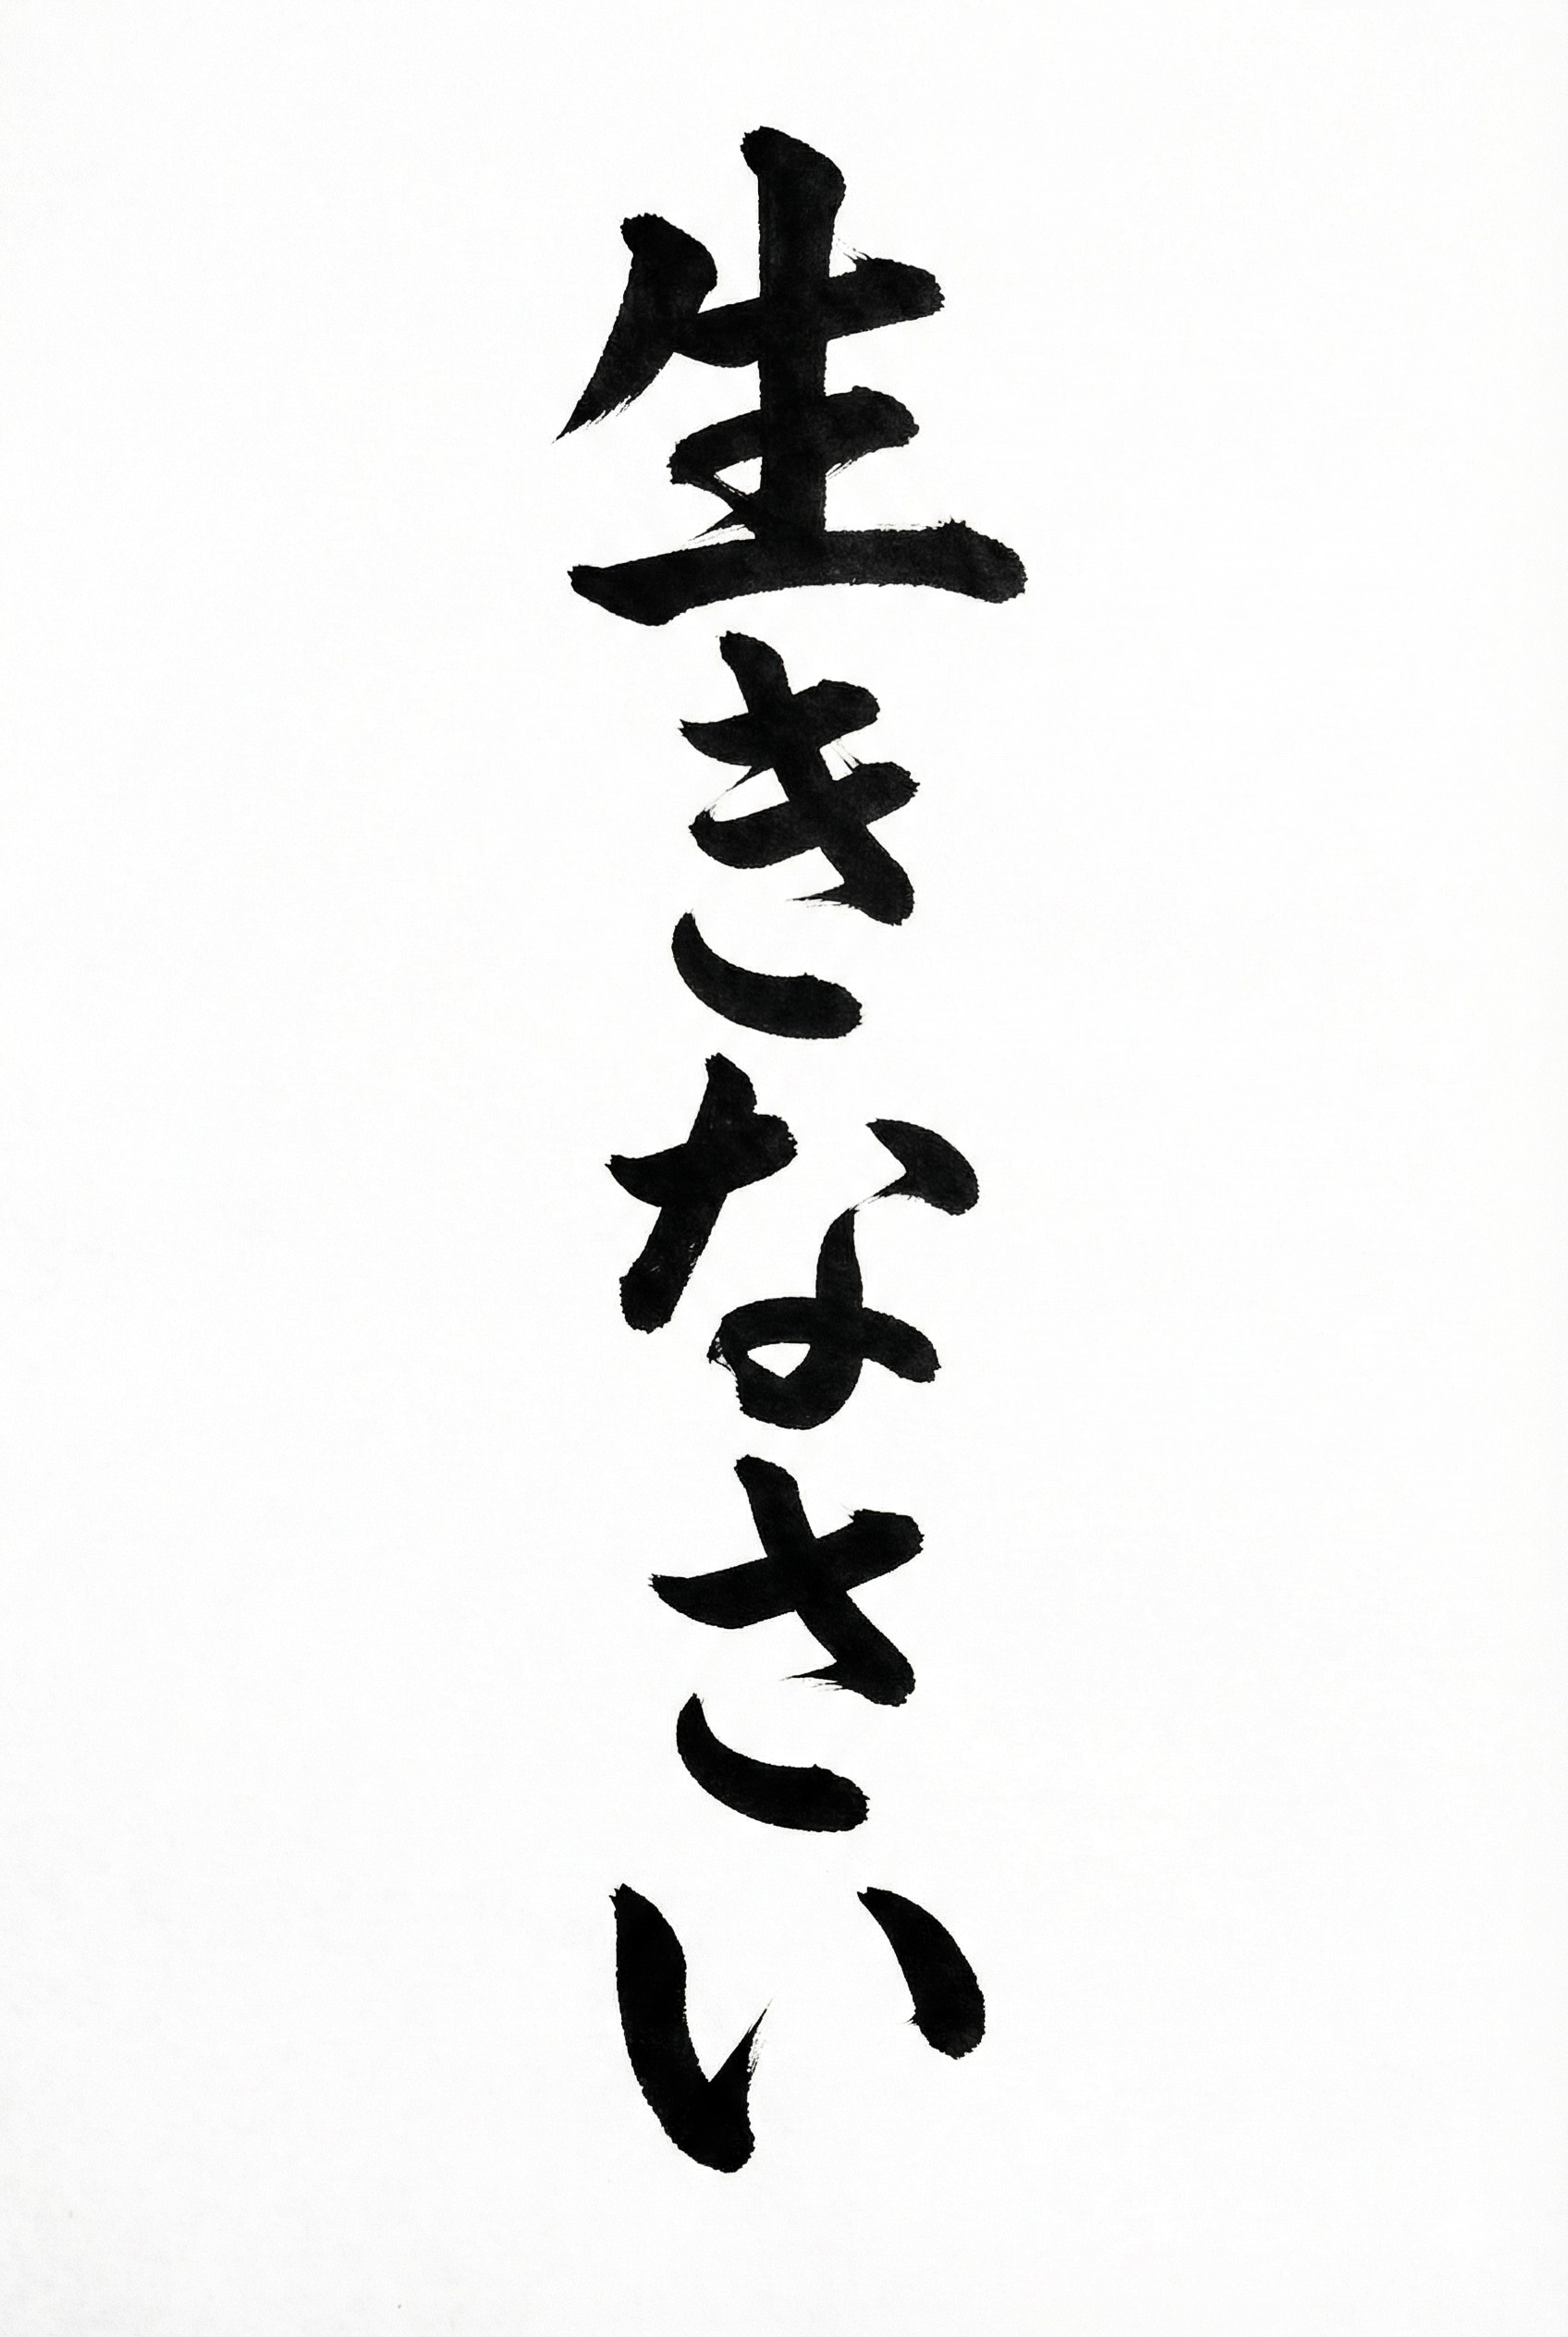 生きなさい